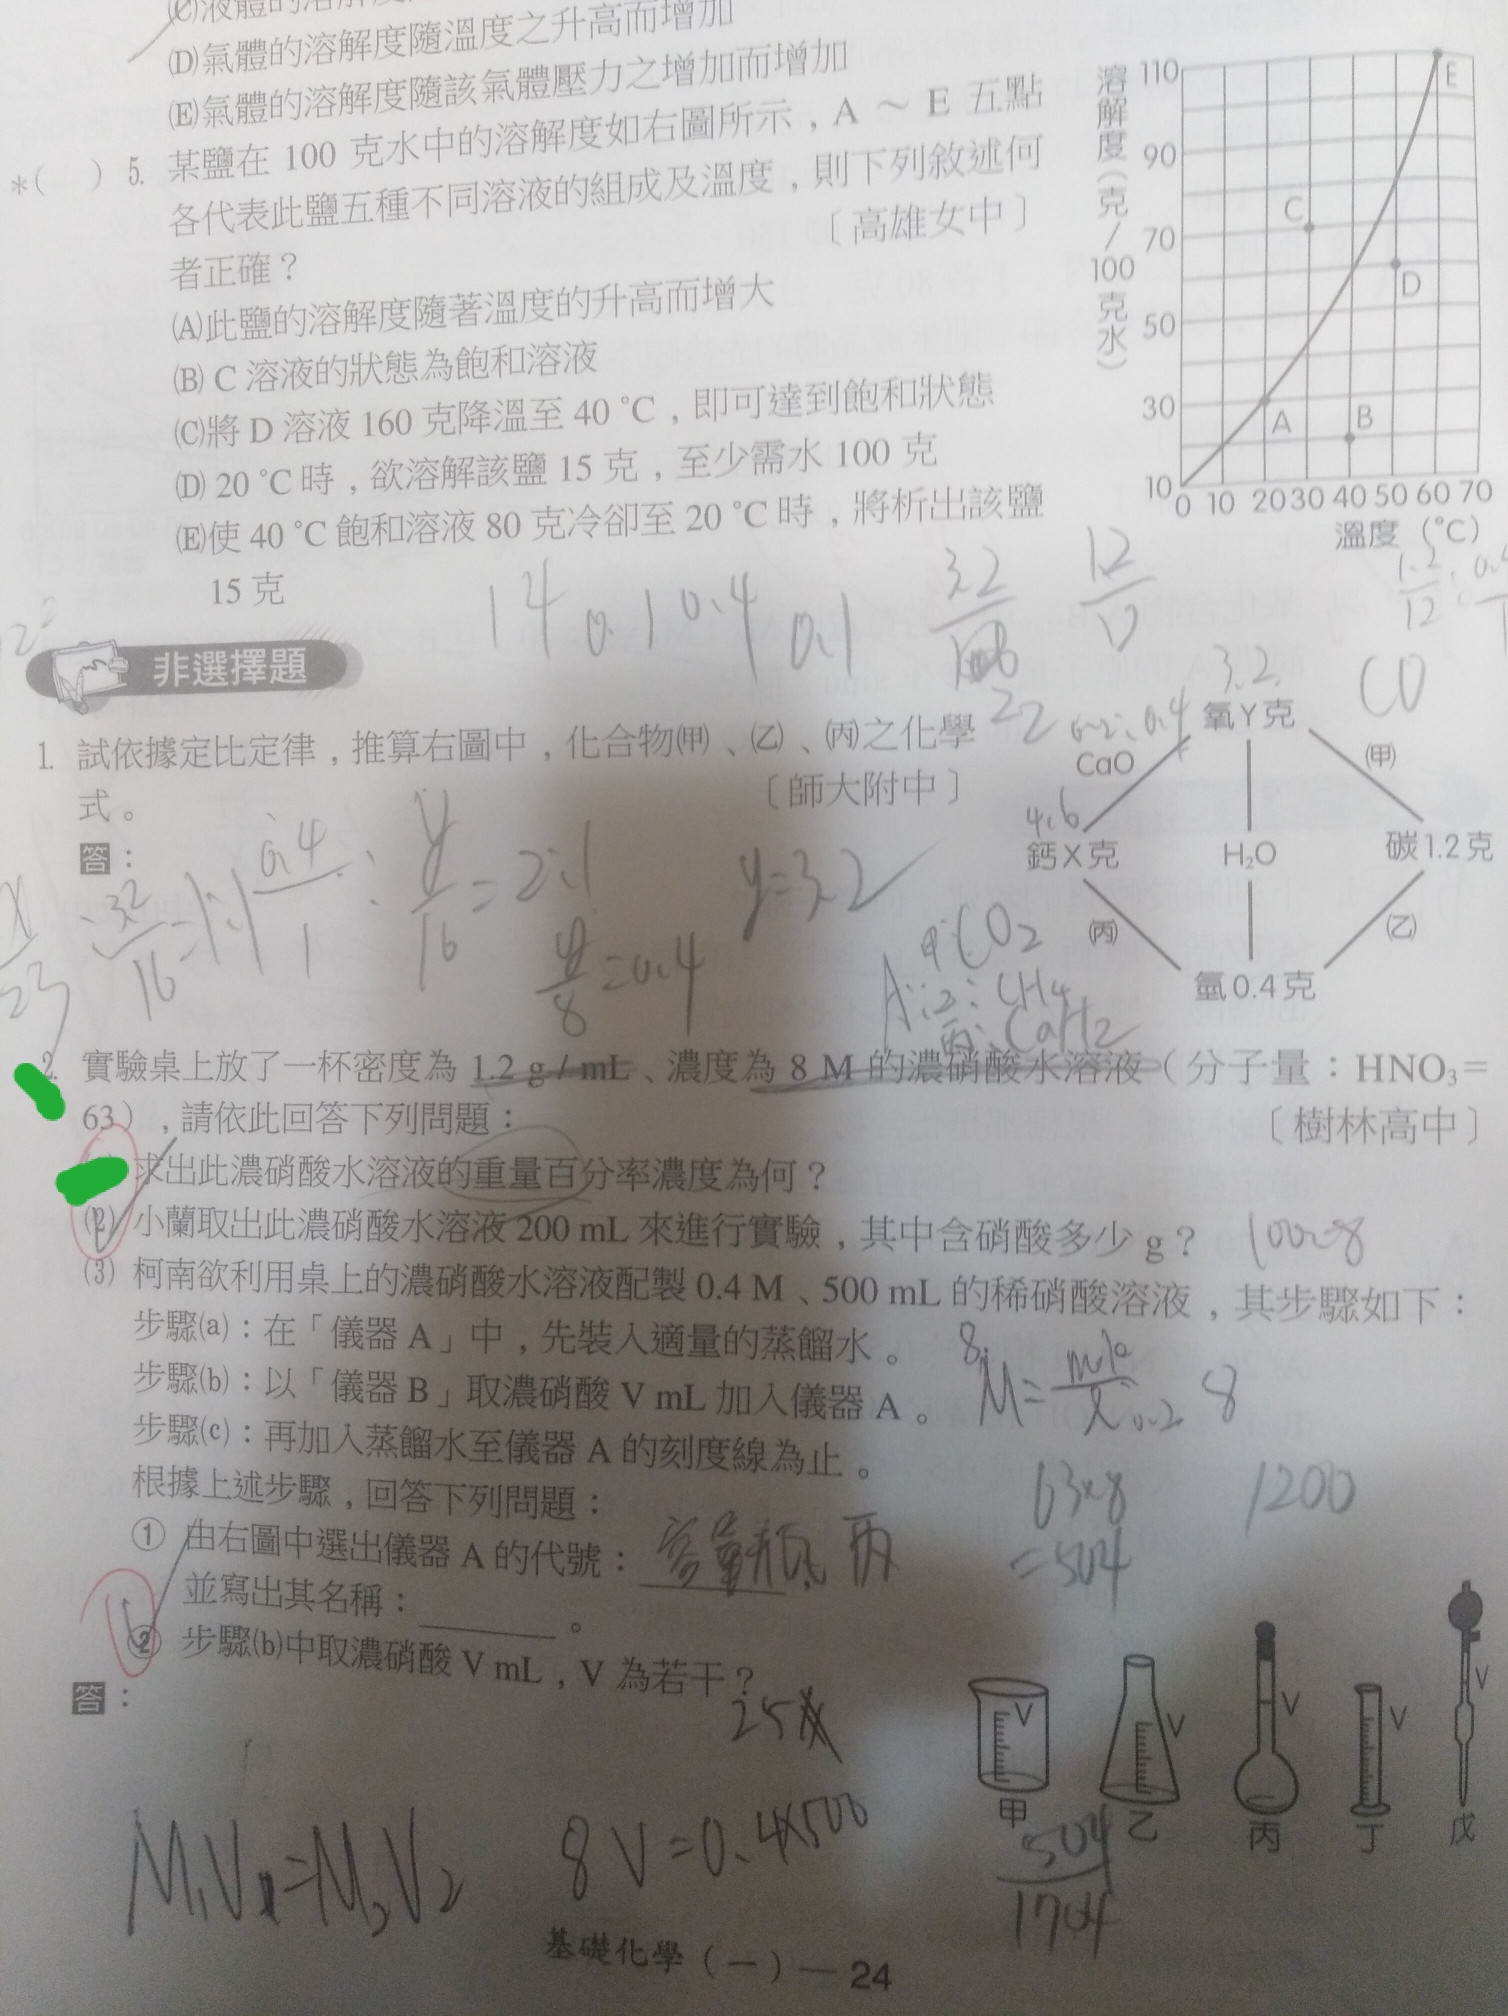 (D)氣體的溶解度隨溫度之升高而增加
(E)氣體的溶解度隨該氣體壓力之增加而增加
*( ) 5. 某鹽在 100 克水中的溶解度如右圖所示，A ～ E 五點
各代表此鹽五種不同溶液的組成及溫度，則下列敘述何
者正確？ 〔高雄女中〕
(A)此鹽的溶解度隨著溫度的升高而增大
(B) C 溶液的狀態為飽和溶液
(C)將 D 溶液 160 克降溫至 40 °C，即可達到飽和狀態
(D) 20 °C 時，欲溶解該鹽 15 克，至少需水 100 克
(E)使 40 °C 飽和溶液 80 克冷卻至 20 °C 時，將析出該鹽
15 克
溶解度（克／100克水）
110
90
70
50
30
10
E
C
D
A
B
0 10 20 30 40 50 60 70
溫度（°C）
14 0.1 0.4 0.1
3.2
12
非選擇題
1. 試依據定比定律，推算右圖中，化合物(甲)、(乙)、(丙)之化學
式。 〔師大附中〕
答：
3.2
CO
氧Y克
0.2:0.4
CaO
(甲)
鈣X克
H₂O
碳1.2克
(丙)
(乙)
氫0.4克
0.4/1 : y/16 = 2:1
y/8 = 0.4
y=3.2
甲:CO₂
A:乙:CH₄
丙:CaH₂
2. 實驗桌上放了一杯密度為 1.2 g / mL、濃度為 8 M 的濃硝酸水溶液（分子量：HNO₃＝
63），請依此回答下列問題： 〔樹林高中〕
求出此濃硝酸水溶液的重量百分率濃度為何？
(2) 小蘭取出此濃硝酸水溶液 200 mL 來進行實驗，其中含硝酸多少 g？
(3) 柯南欲利用桌上的濃硝酸水溶液配製 0.4 M、500 mL 的稀硝酸溶液，其步驟如下：
步驟(a)：在「儀器 A」中，先裝入適量的蒸餾水。
步驟(b)：以「儀器 B」取濃硝酸 V mL 加入儀器 A。
步驟(c)：再加入蒸餾水至儀器 A 的刻度線為止。
根據上述步驟，回答下列問題：
① 由右圖中選出儀器 A 的代號：容量瓶 丙
並寫出其名稱：＿＿＿＿。
② 步驟(b)中取濃硝酸 V mL，V 為若干？
63×8
=504
1200
25
答：
V
V
V
V
V
甲
乙
丙
丁
戊
M₁V₁=M₂V₂
8V=0.4×500
504
1704
基礎化學（一）— 24